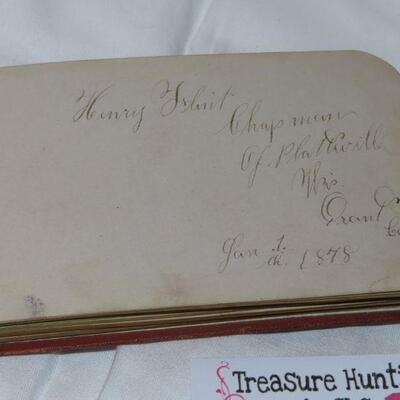 Henry
Chapman
Of Plattvill
Wis.
Grant
Jan. 1. 1878
Treasure Hunti